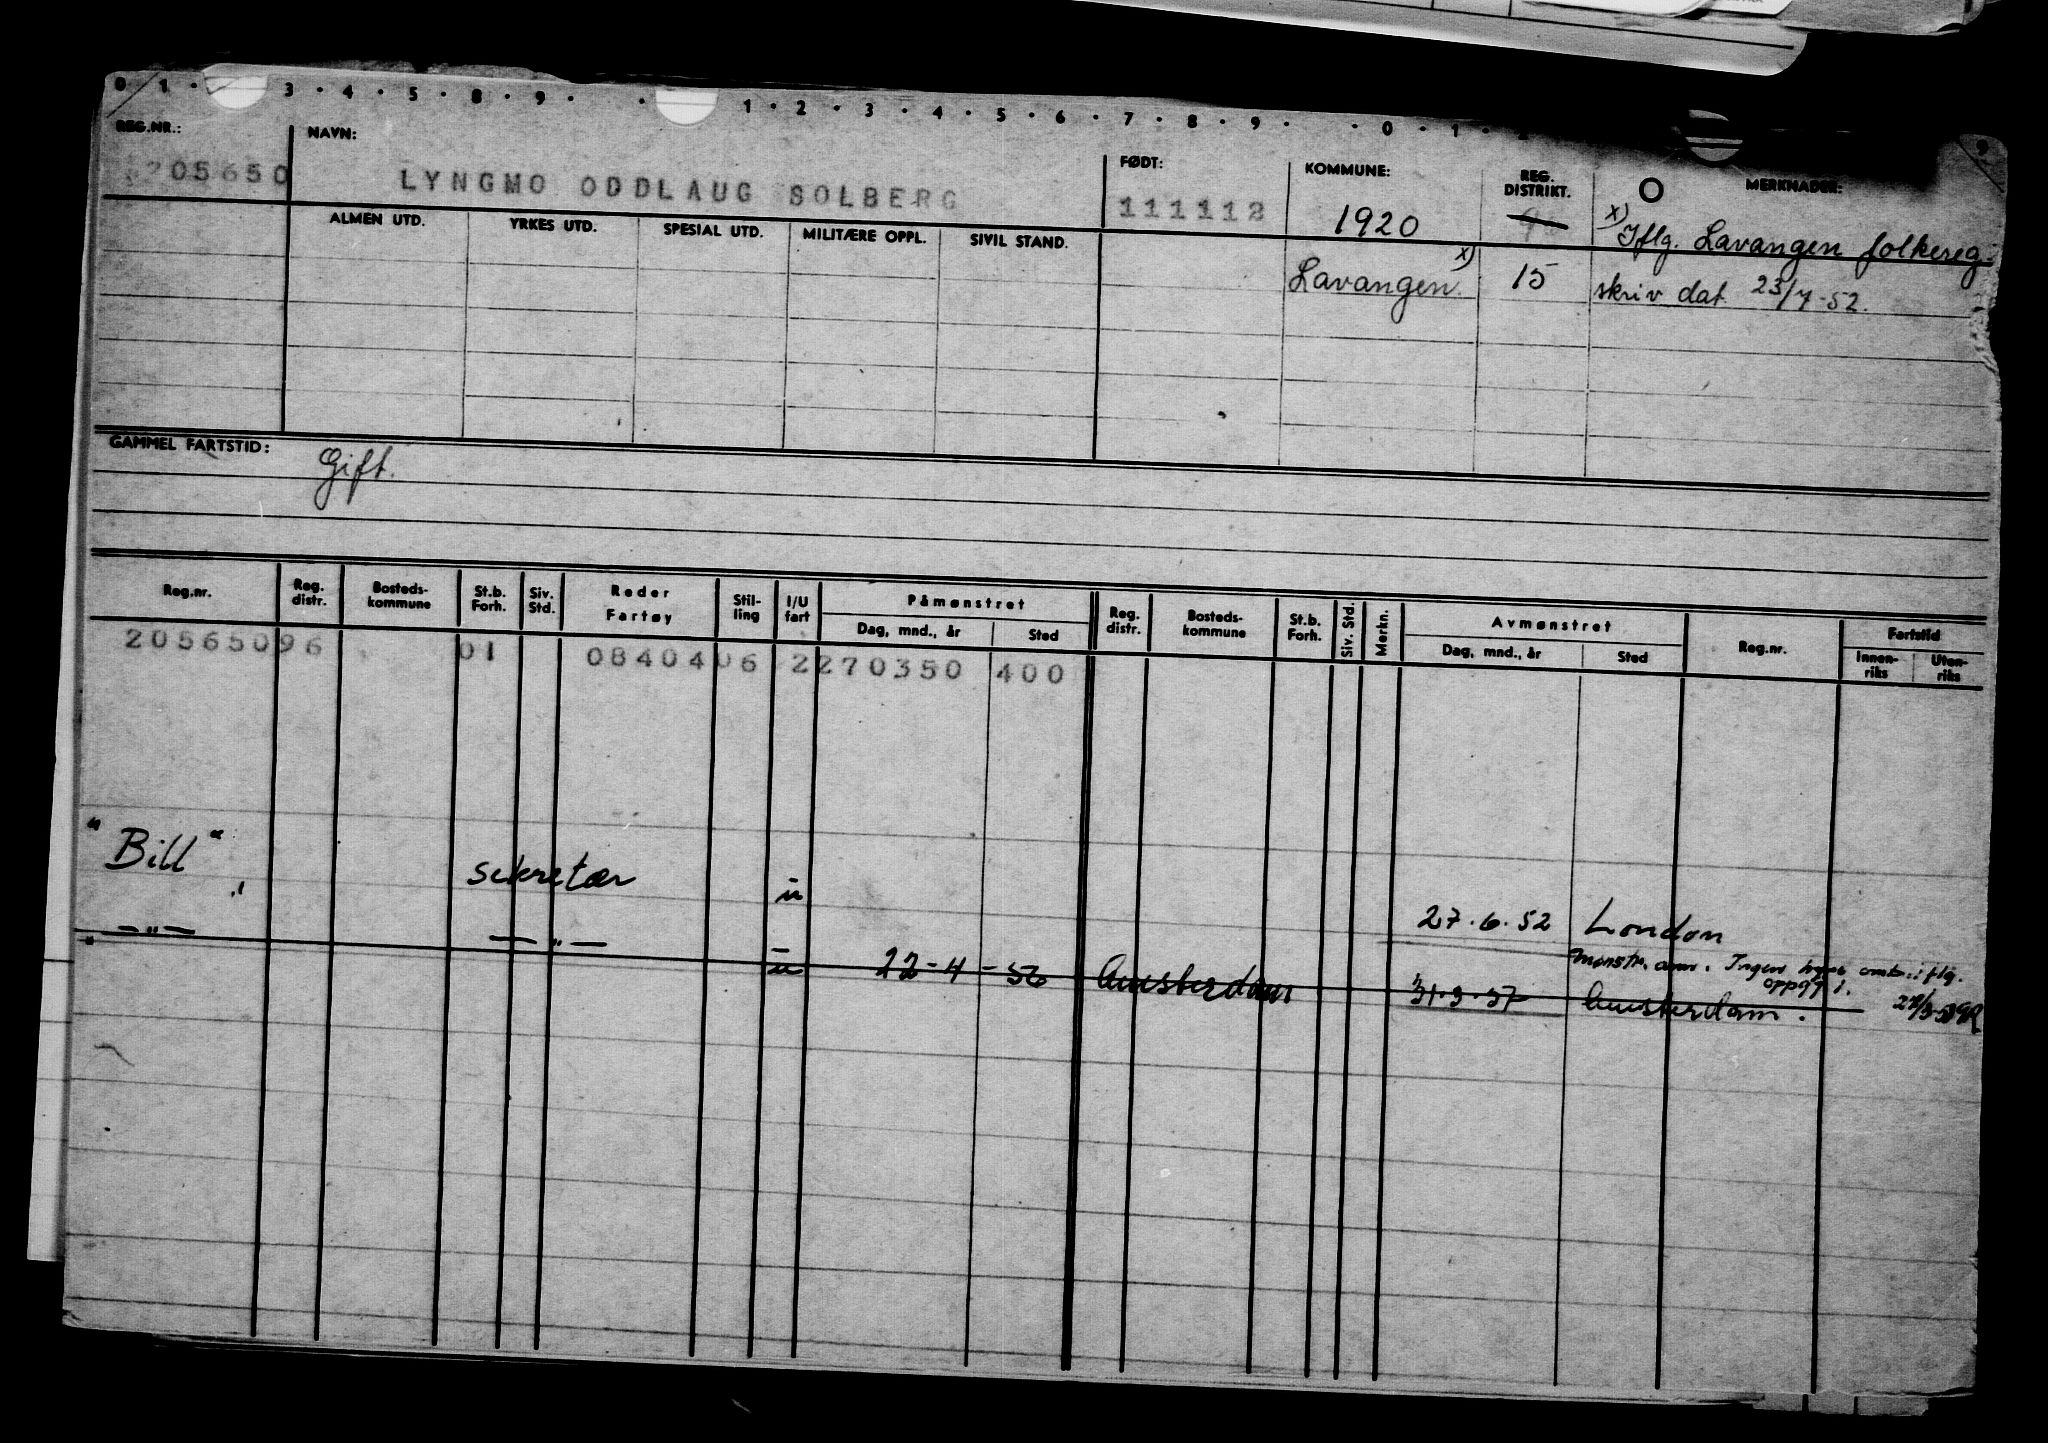 0 · 1 · 3 · 4 · 5 · 8 · 9 · · 1 · 2 · 3 · 4 · 5 · 6 · 7 · 8 · 9 · · 0 · 1 · 9
REG.NR.: NAVN: FØDT: KOMMUNE: REG. DISTRIKT. MERKNADER:
205650 LYNGMO ODDLAUG SOLBERG 111112 1920 9 x) Iflg. Lavangen folkereg.
ALMEN UTD. YRKES UTD. SPESIAL UTD. MILITÆRE OPPL. SIVIL STAND.
Lavangen x) 15 skriv dat. 23/7-52.
GAMMEL FARTSTID: Gift.
Reg.nr. Reg. distr. Bosteds-kommune St.b. Forh. Siv. Std. Reder Fartøy Stil-ling I/U fart Påmønstret Dag, mnd., år Sted Reg. distr. Bosteds-kommune St.b. Forh. Siv. Std. Merkn. Avmønstret Dag, mnd., år Sted Reg.nr. Fartstid Innen-riks Uten-riks
20565096 01 0840406 2270350 400
"Bill" sekretær u 27.6.52 London
— " — — " — u 22-4-56 Amsterdam 31.3.57 Amsterdam.
mønstr. ann. Ingen hyre iflg.
oppg.